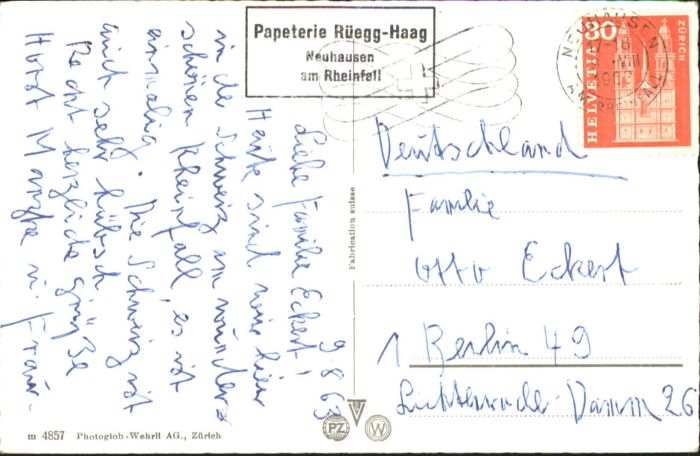 Papeterie Rüegg-Haag
Neuhausen
am Rheinfall
NEUHAUSEN
AM RHEINFALL
30
HELVETIA
ZÜRICH
9 8 63
Liebe Familie Eckert!
Heute sind wir hier
in der Schweiz am wunder
schönen Rheinfall, es ist
einmalig. Die Schweiz ist
auch sehr hübsch
Recht herzliche Grüße
Horst u. Frau
Deutschland
Familie
Otto Eckert
1 Berlin 49
Lichtenrader-Damm 26
Fabrication suisse
m 4857 Photoglob-Wehrli AG., Zürich
PZ
W